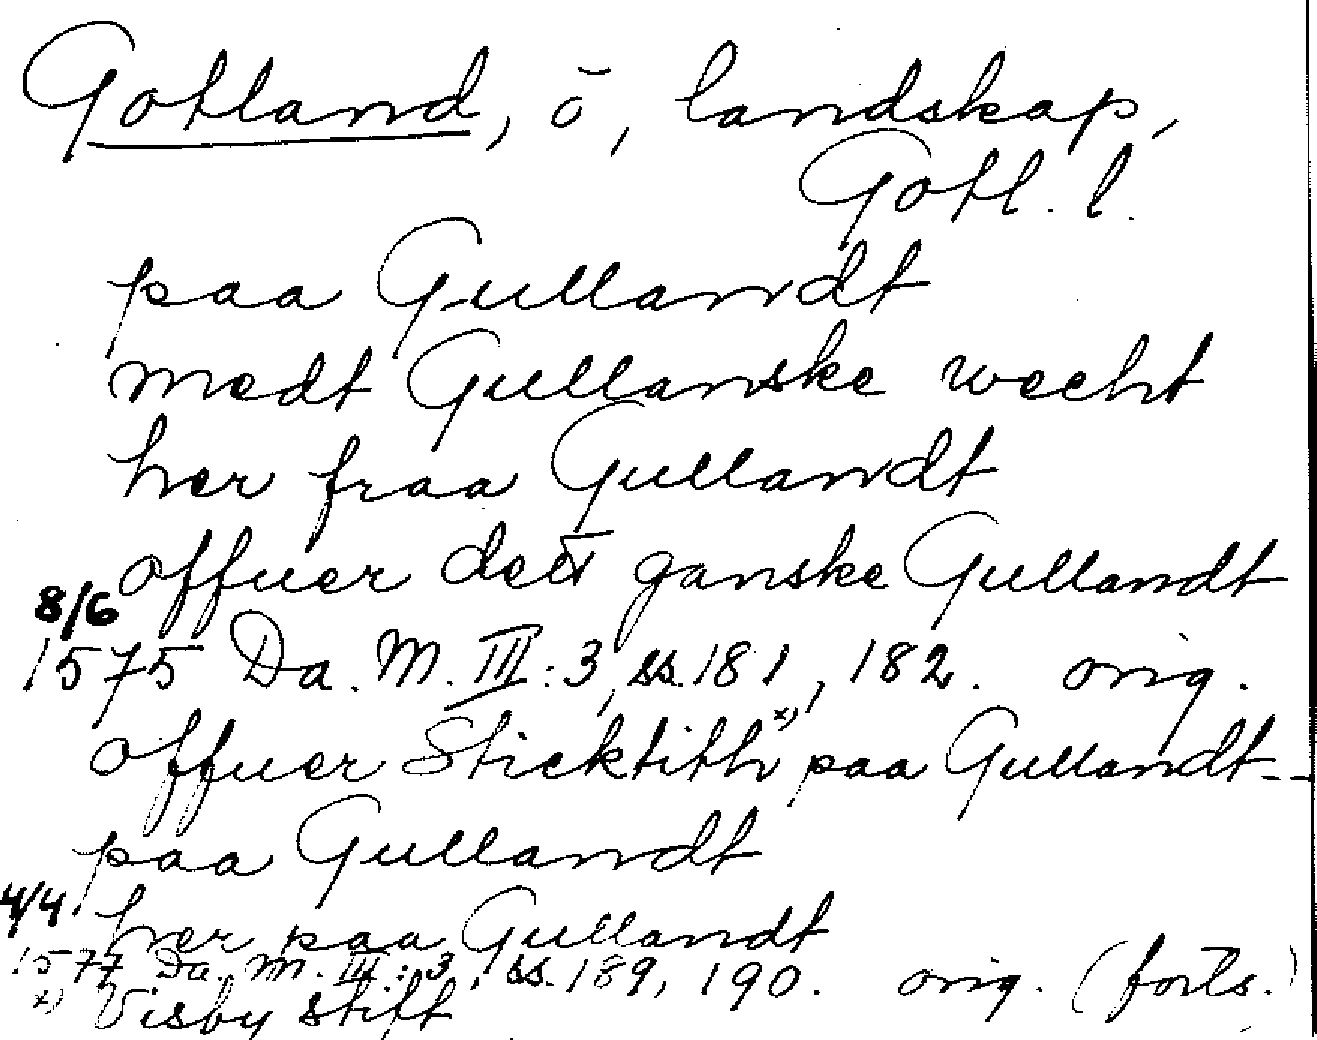 Gotland, ö, landskap,
Gotl. l.
paa Gullandt
medt Gullanske wecht
her fraa Gullandt
offuer dett ganske Gullandt
8/6
1575 Da. M. III: 3, ss. 181, 182. orig.
offuer Sticktith x) paa Gullandt--
paa Gullandt
4/4. her paa Gullandt
1577 Da. M. III: 3, ss. 189, 190. orig. (forts.)
x) Visby stift